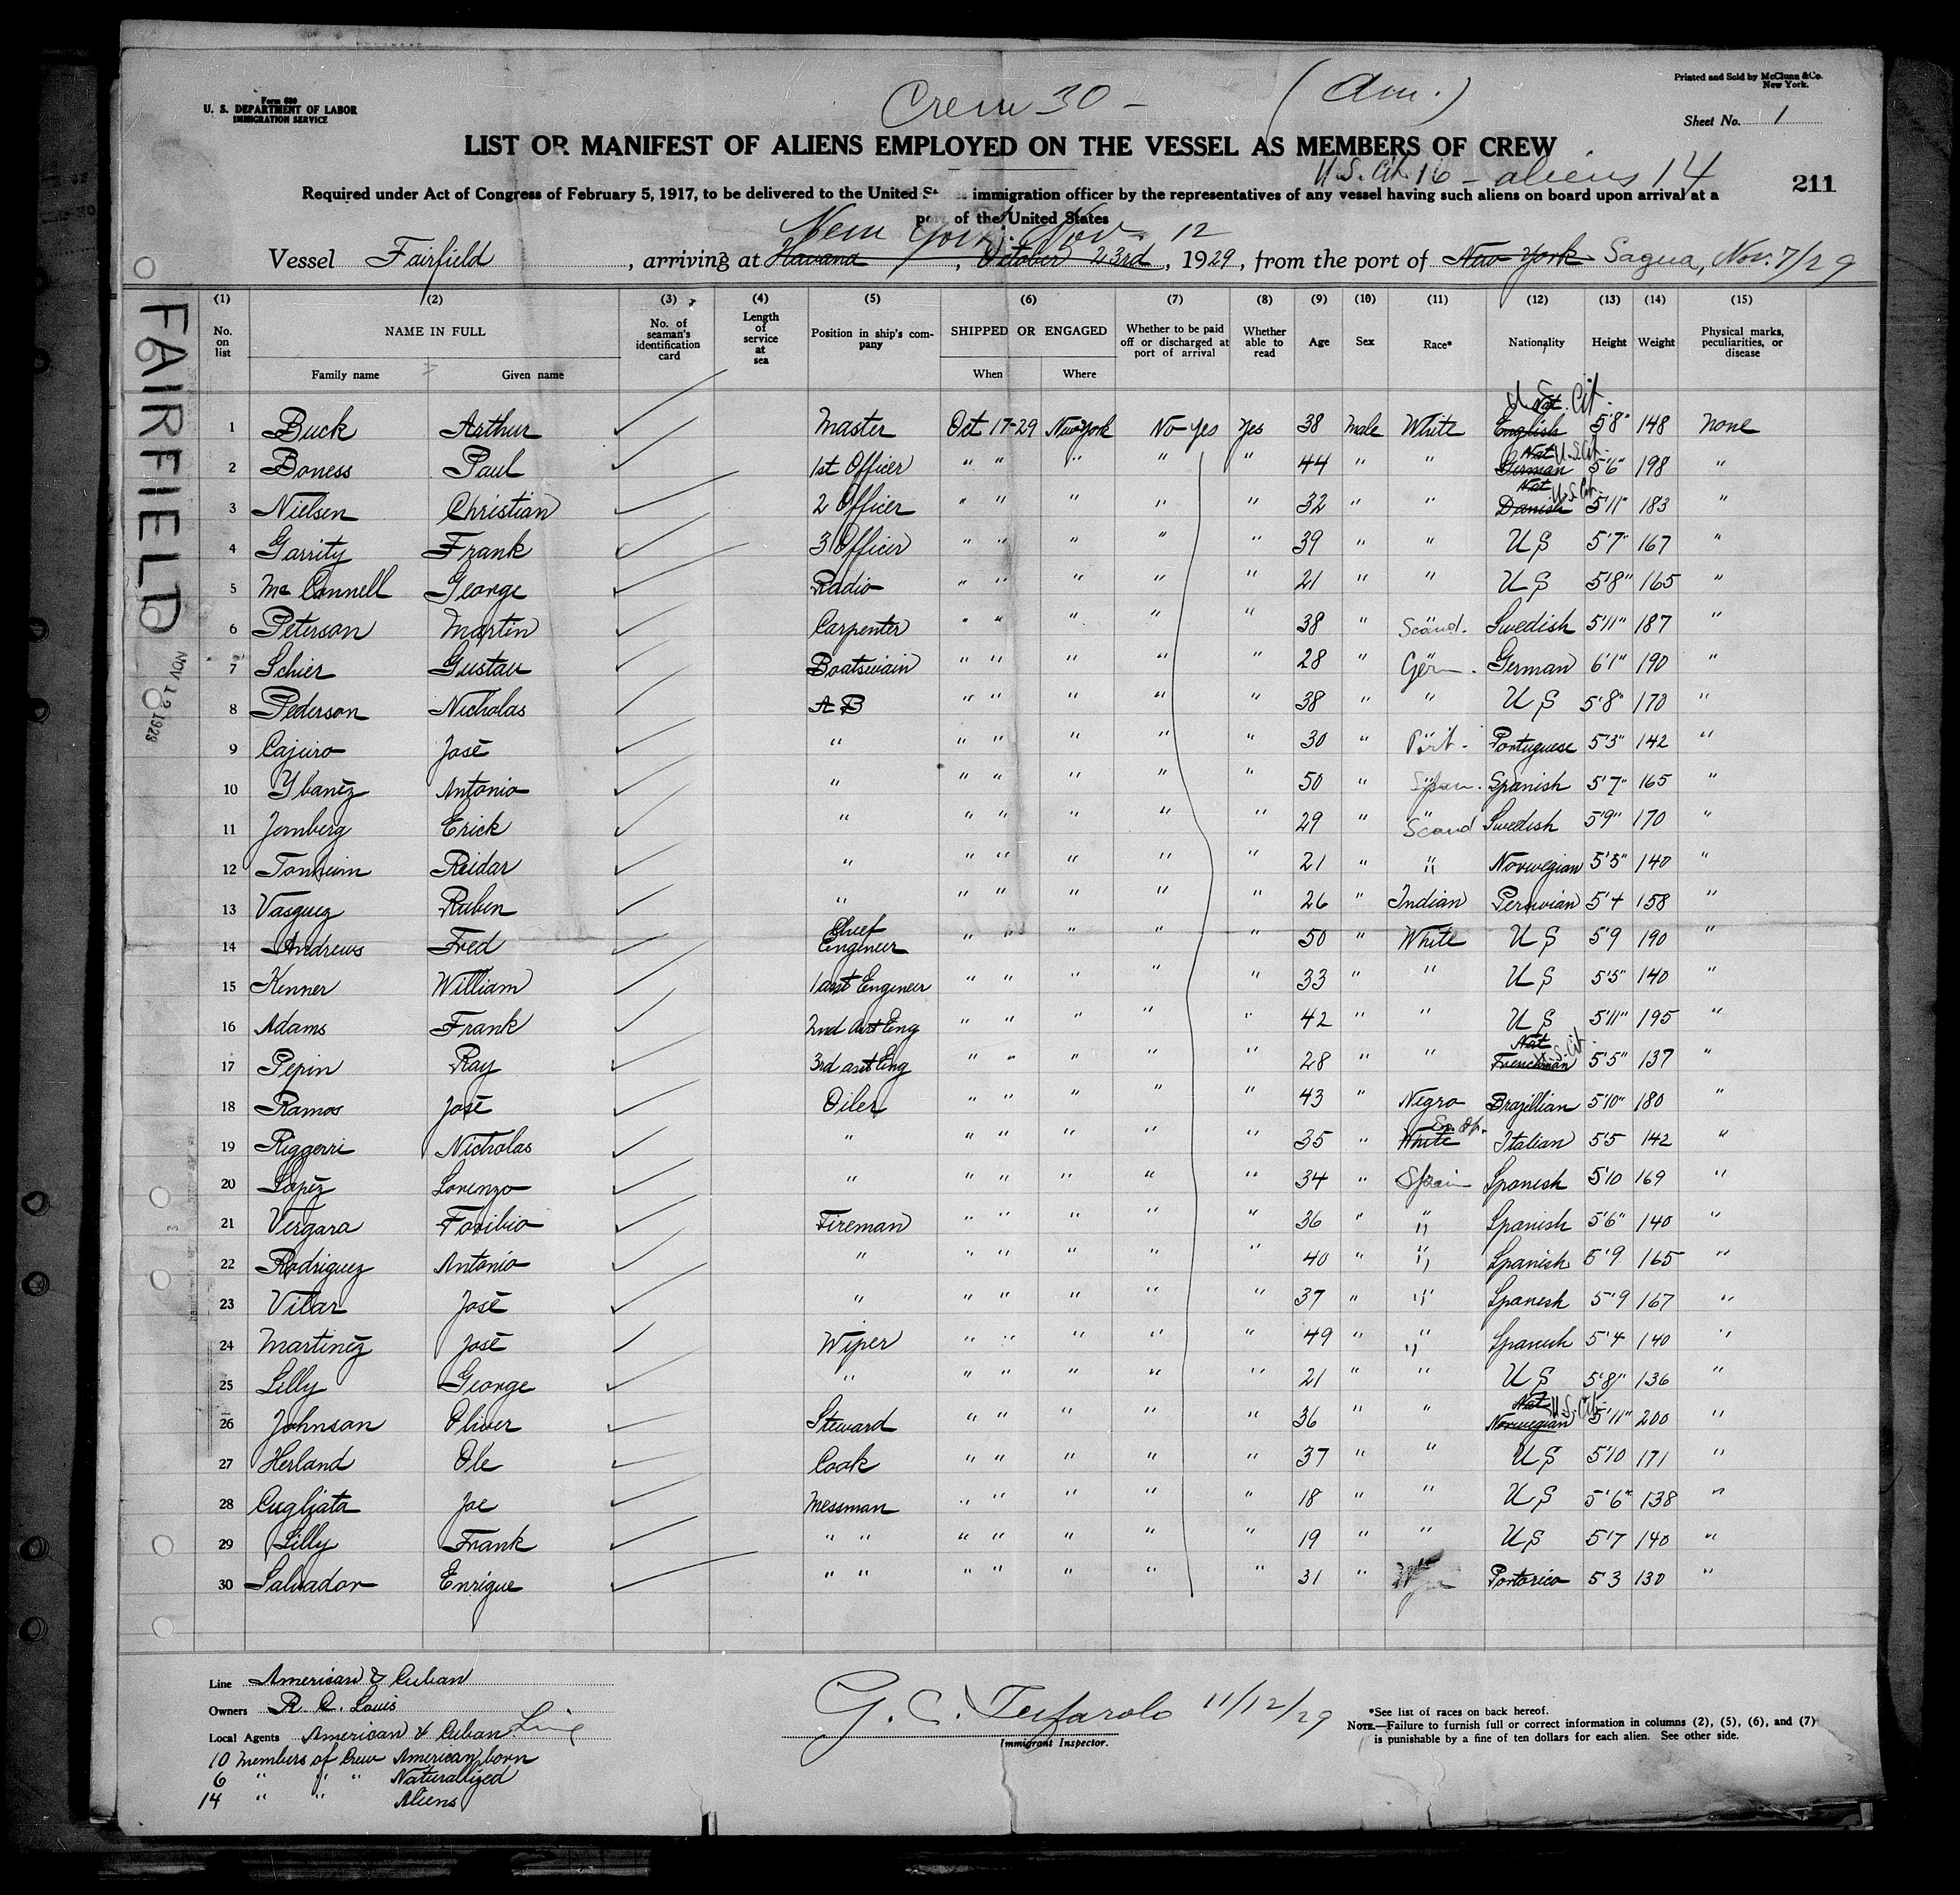 Form 680
U. S. DEPARTMENT OF LABOR
IMMIGRATION SERVICE
Crew 30 - (Am.)
Printed and Sold by McClunn & Co.
New York.
Sheet No. 1
LIST OR MANIFEST OF ALIENS EMPLOYED ON THE VESSEL AS MEMBERS OF CREW
U.S. Cit. 16 - aliens 14
211
Required under Act of Congress of February 5, 1917, to be delivered to the United States immigration officer by the representatives of any vessel having such aliens on board upon arrival at a
port of the United States
New York Nov. 12
Vessel Fairfield, arriving at Havana, October 23rd, 1929, from the port of New York Sagua, Nov. 7/29
FAIRFIELD
NOV 12 1929
(1) (2) (3) (4) (5) (6) (7) (8) (9) (10) (11) (12) (13) (14) (15)
No. on list NAME IN FULL No. of seaman's identification card Length of service at sea Position in ship's company SHIPPED OR ENGAGED Whether to be paid off or discharged at port of arrival Whether able to read Age Sex Race* Nationality Height Weight Physical marks, peculiarities, or disease
Family name Given name When Where
U.S. Cit.
Nat
1 Buck Arthur Master Oct 17-29 New York No yes yes 38 male White English 5'8" 148 none
Nat U.S. Cit.
2 Boness Paul 1st Officer " " " " " 44 " " German 5'6" 198 "
Nat U.S. Cit.
3 Nielsen Christian 2 Officer " " " " " 32 " " Danish 5'11" 183 "
4 Garrity Frank 3 Officer " " " " " 39 " " U S 5'7" 167 "
5 Mc Connell George Radio " " " " " 21 " " U S 5'8" 165 "
6 Peterson Martin Carpenter " " " " " 38 " Scand. Swedish 5'11" 187 "
7 Schier Gustav Boatswain " " " " " 28 " Ger. German 6'1" 190 "
8 Pederson Nicholas A B " " " " " 38 " " U S 5'8" 170 "
9 Cajuro José " " " " " " 30 " Port. Portuguese 5'3" 142 "
10 Ybanéz Antonio " " " " " " 50 " Span. Spanish 5'7" 165 "
11 Jernberg Erick " " " " " " 29 " Scand Swedish 5'9" 170 "
12 Tonheim Reidar " " " " " " 21 " " Norwegian 5'5" 140 "
13 Vasquez Ruben " " " " " " 26 " Indian Peruvian 5'4 158 "
14 Andrews Fred Chief Engineer " " " " " 50 " White U S 5'9 190 "
15 Kenner William 1 asst Engineer " " " " " 33 " " U S 5'5" 140 "
16 Adams Frank 2nd asst Eng " " " " " 42 " " U S 5'11" 195 "
Nat U.S. Cit.
17 Pepin Ray 3rd asst Eng " " " " " 28 " " Frenchman 5'5" 137 "
18 Ramos José Oiler " " " " " 43 " Negro Brazillian 5'10" 180 "
19 Riggerri Nicholas " " " " " " 35 " White So. It. Italian 5'5 142 "
20 Lopéz Lorenzo " " " " " " 34 " Spain Spanish 5'10 169 "
21 Vergara Toribio Fireman " " " " " 36 " " Spanish 5'6" 140 "
22 Rodriguez Antonio " " " " " " 40 " " Spanish 5'9 165 "
23 Vilar José " " " " " " 37 " " Spanish 5'9 167 "
24 Martinéz José Wiper " " " " " 49 " " Spanish 5'4 140 "
25 Lilly George " " " " " " 21 " " U S 5'8" 136 "
Nat U.S. Cit.
26 Johnson Oliver Steward " " " " " 36 " " Norwegian 5'11" 200 "
27 Herland Ole Cook " " " " " 37 " " U S 5'10 171 "
28 Cugliata Joe Messman " " " " " 18 " " U S 5'6" 138 "
29 Lilly Frank " " " " " " " 19 " " U S 5'7 140 "
30 Salvador Enrique " " " " " " " 31 " Portorico 5 3 130 "
Line American & Cuban
Owners R. A. Louis
Local Agents American & Cuban Line
10 members of Crew American born
6 " " " Naturalized
14 " " Aliens
G. C. 11/12/29
Immigrant Inspector.
*See list of races on back hereof.
NOTE.—Failure to furnish full or correct information in columns (2), (5), (6), and (7)
is punishable by a fine of ten dollars for each alien. See other side.